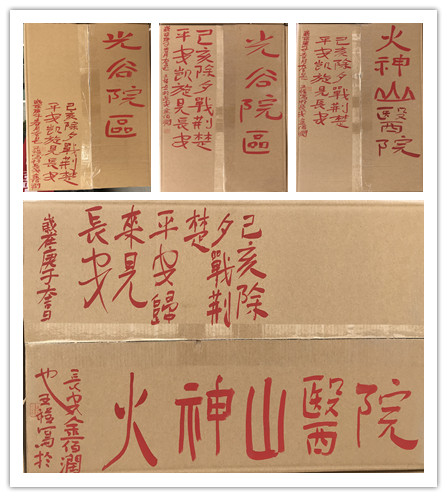 光谷院區
己亥除夕戰荆楚
平安凯旋見長安
光谷院區
己亥除夕戰荆楚
平安凯旋見長安
火神山醫院
己亥除夕戰荆楚
平安凯旋見長安
己亥除
夕戰荆
楚
平安歸
來見
長安
歲在庚子
火神山醫院
長安
寫於